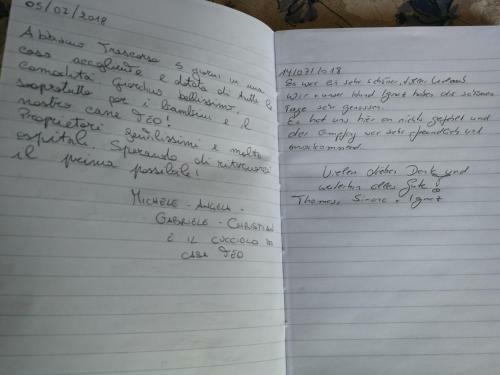 05/07/2018
Abbiamo trascorso 5 giorni in una
casa accogliente e dotata di tutte le
comodità. Giardino bellissimo,
soprattutto per i bambini e il
nostro cane TEO!
Proprietari gentilissimi e molto
ospitali. Sperando di ritornarci
il prima possibile!
MICHELE - ANGELA -
GABRIELE - CHRISTIAN
E IL CUCCIOLO DI
CASA TEO
14/07/2018
Es war ein sehr schöner Urlaub
Wir + unser Hund Ignaz haben die schönen
Tage sehr genossen.
Es hat uns hier an nichts gefehlt und
der Empfang war sehr freundlich und
zuvorkommend.
Vielen lieben Dank und
weiterhin alles Gute!
Thomas, Simone + Ignaz